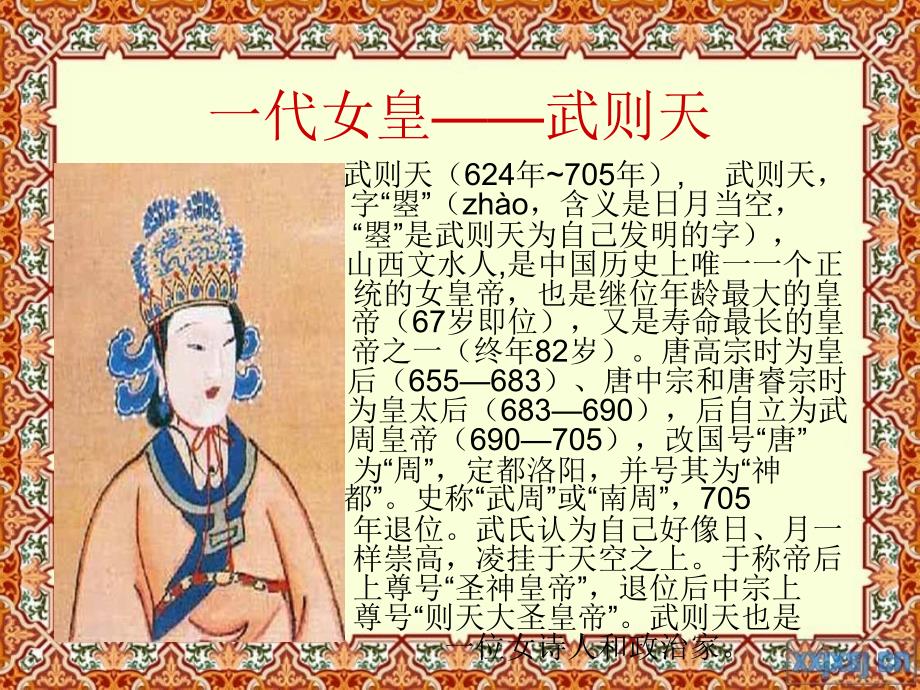 一代女皇——武则天
武则天（624年~705年）,　武则天，
字“曌”（zhào，含义是日月当空，
“曌”是武则天为自己发明的字），
山西文水人,是中国历史上唯一一个正
统的女皇帝，也是继位年龄最大的皇
帝（67岁即位），又是寿命最长的皇
帝之一（终年82岁）。唐高宗时为皇
后（655—683）、唐中宗和唐睿宗时
为皇太后（683—690），后自立为武
周皇帝（690—705），改国号“唐”
为“周”，定都洛阳，并号其为“神
都”。史称“武周”或“南周”，705
年退位。武氏认为自己好像日、月一
样崇高，凌挂于天空之上。于称帝后
上尊号“圣神皇帝”，退位后中宗上
尊号“则天大圣皇帝”。武则天也是
一位女诗人和政治家。